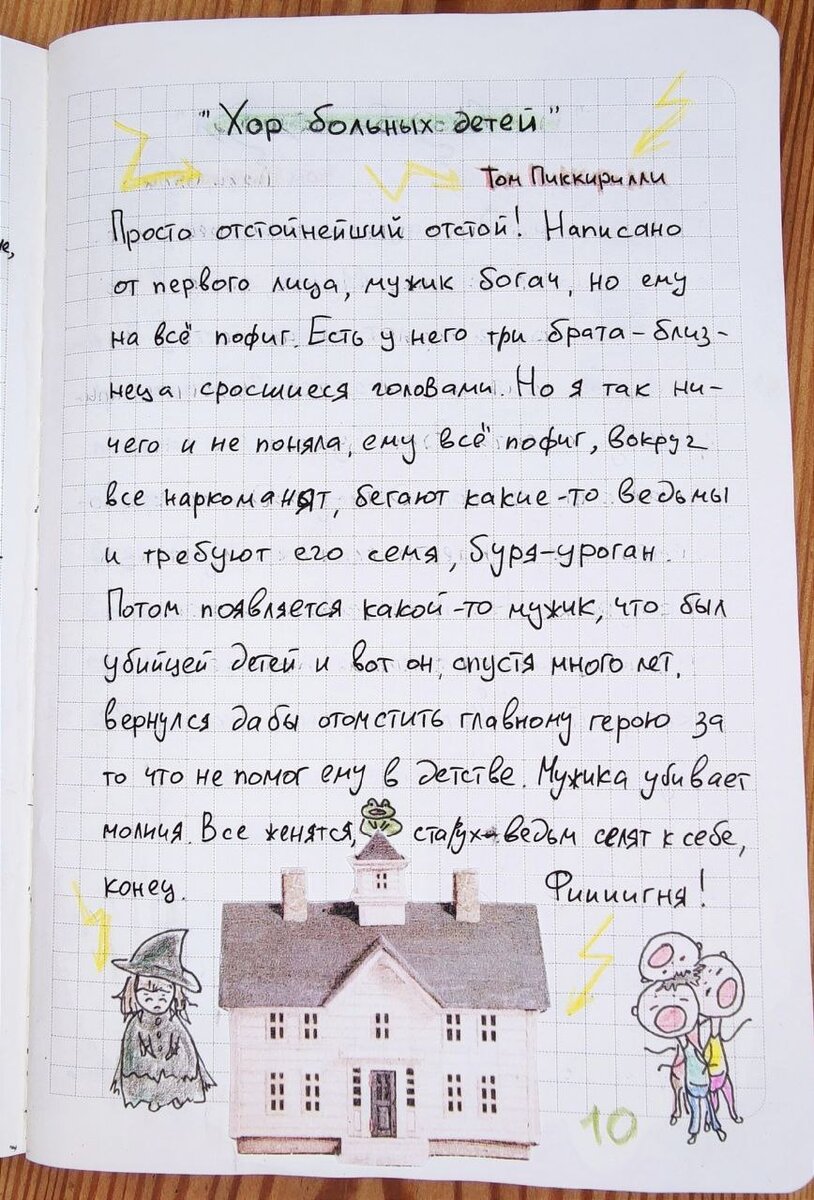 "Хор больных детей"
Том Пиккирилли
Просто отстойнейший отстой! Написано
от первого лица, мужик богач, но ему
на всё пофиг. Есть у него три брата-близ-
неца сросшиеся головами. Но я так ни-
чего и не поняла, ему всё пофиг, вокруг
все наркоманят, бегают какие-то ведьмы
и требуют его семя, буря-уроган.
Потом появляется какой-то мужик, что был
убийцей детей и вот он, спустя много лет,
вернулся дабы отомстить главному герою за
то что не помог ему в детстве. Мужика убивает
молния. Все женятся, старух-ведьм селят к себе,
конец. Фиииигня!
10